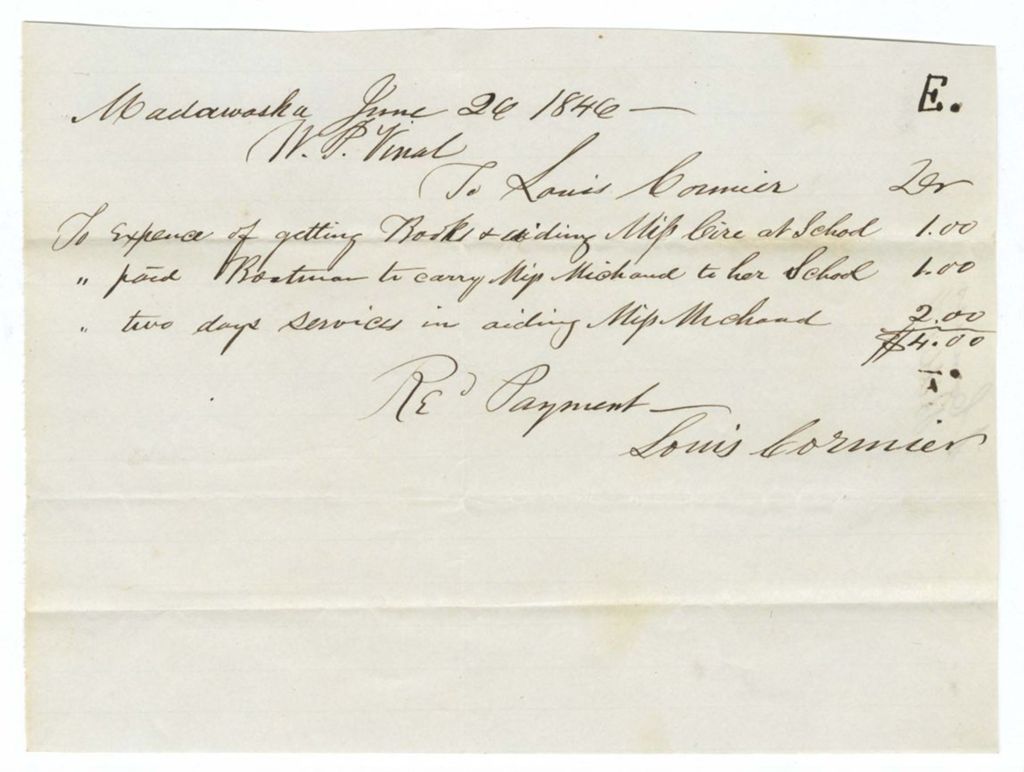 E.
Madawaska June 26 1846 —
W. P. Vinal
To Louis Cormier Dr
To Expence of getting Books & aiding Miss Cire at School 1.00
" paid Boatman to carry Miss Michaud to her School 1.00
" two days services in aiding Miss Michaud 2.00
$4.00
Recd Payment —
Louis Cormier